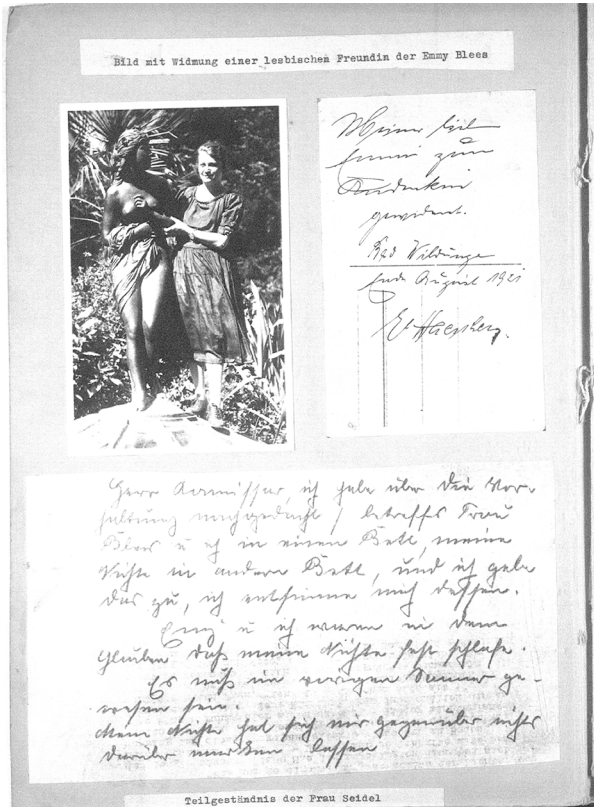 Bild mit Widmung einer lesbischen Freundin der Emmy Blees
Meiner lieb
Emmi zum
Andenken
gewidmet.
Bad Wildunge
Ende August 1921
Herr Kommissar, ich habe über die Vor-
haltung nachgedacht / betreffs Frau
Blees u ich in einen Bett, meine
Nichte in andern Bett, und ich gebe
das zu, ich entsinne mich dessen.
Emy u ich waren in dem
Glauben daß meine Nichte fest schlafe.
Es muß im vorigen Sommer ge-
wesen sein.
Mein Nichte hat sich mir gegenüber nichts
darüber merken lassen
Teilgeständnis der Frau Seidel